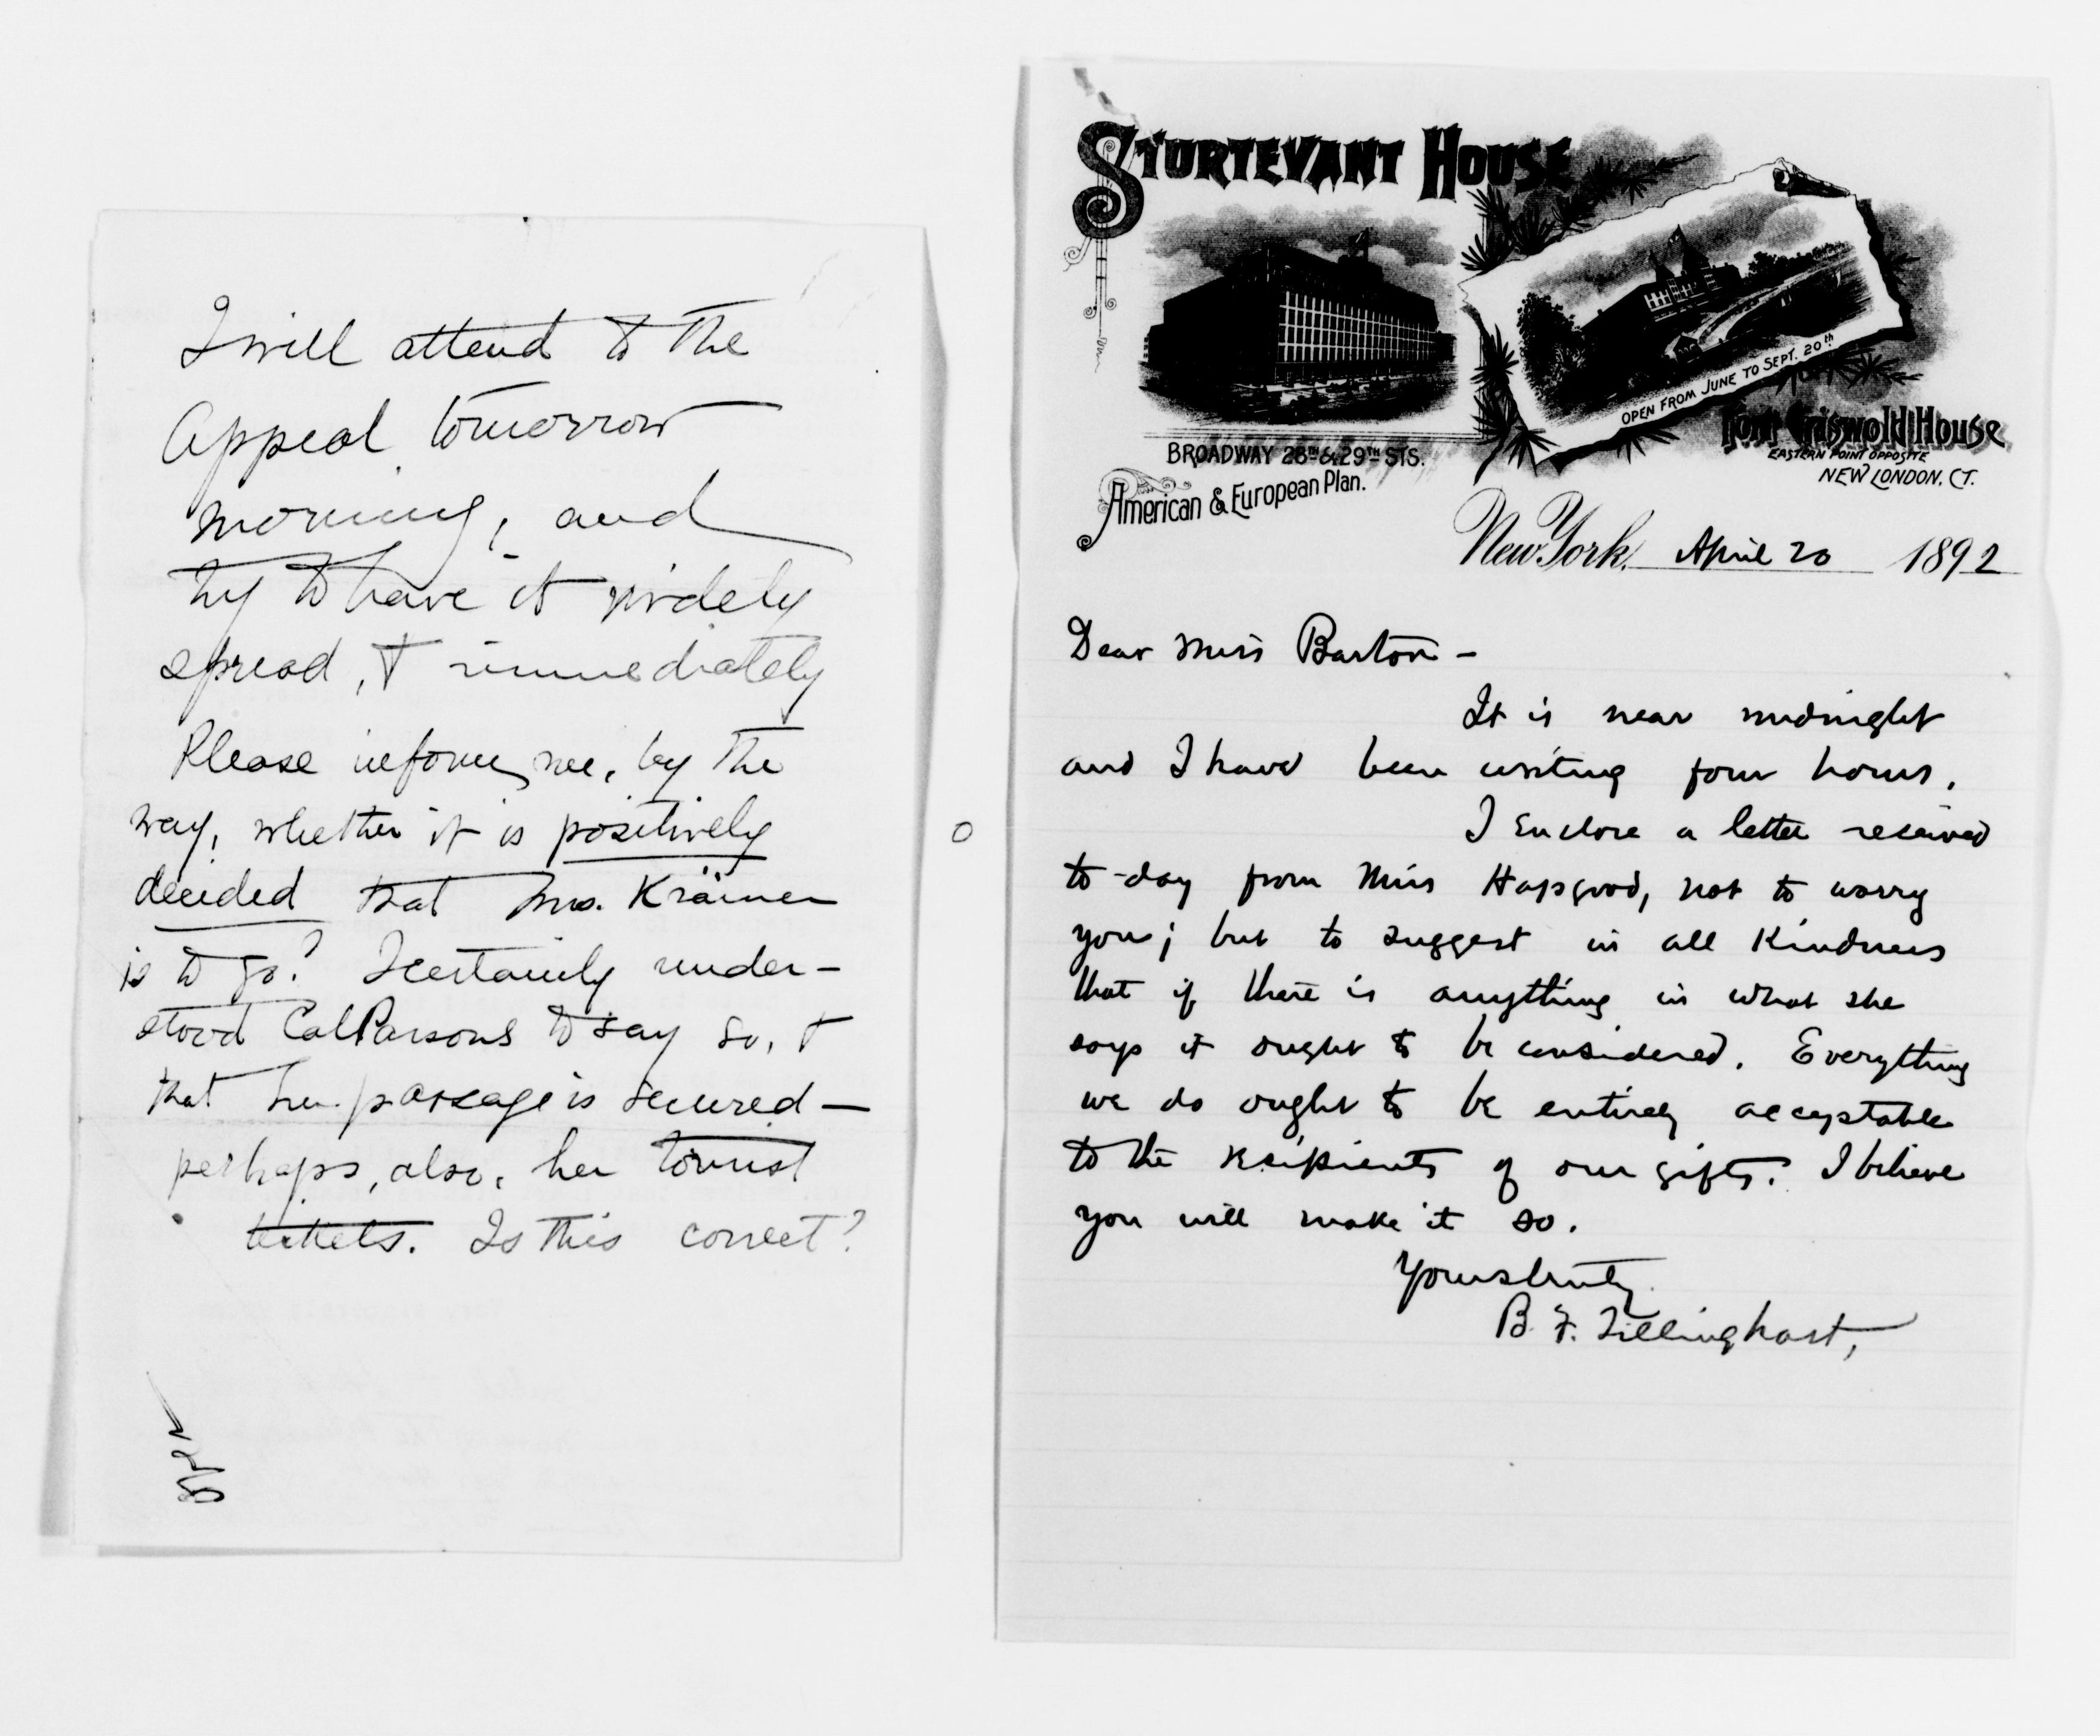 I will attend to the
Appeal tomorrow
morning, and
try to have it widely
spread, & immediately
Please inform me, by the
way, whether it is positively
decided that Mrs. Krämer
is to go? I certainly under-
stood Col Parsons to say so, &
that her passage is secured —
perhaps, also, her tourist
tickets. Is this correct?
STURTEVANT HOUSE
OPEN FROM JUNE TO SEPT. 20th
Fort Griswold House
EASTERN POINT OPPOSITE
NEW LONDON, CT.
BROADWAY 28TH & 29TH STS.
American & European Plan.
New York, April 20 1892
Dear Miss Barton -
It is near midnight
and I have been writing four hours.
I enclose a letter received
to-day from Miss Hapgood, not to worry
you; but to suggest in all kindness
that if there is anything in what she
says it ought to be considered. Everything
we do ought to be entirely acceptable
to the recipients of our gifts. I believe
you will make it so.
Yours truly
B. F. Tillinghast,